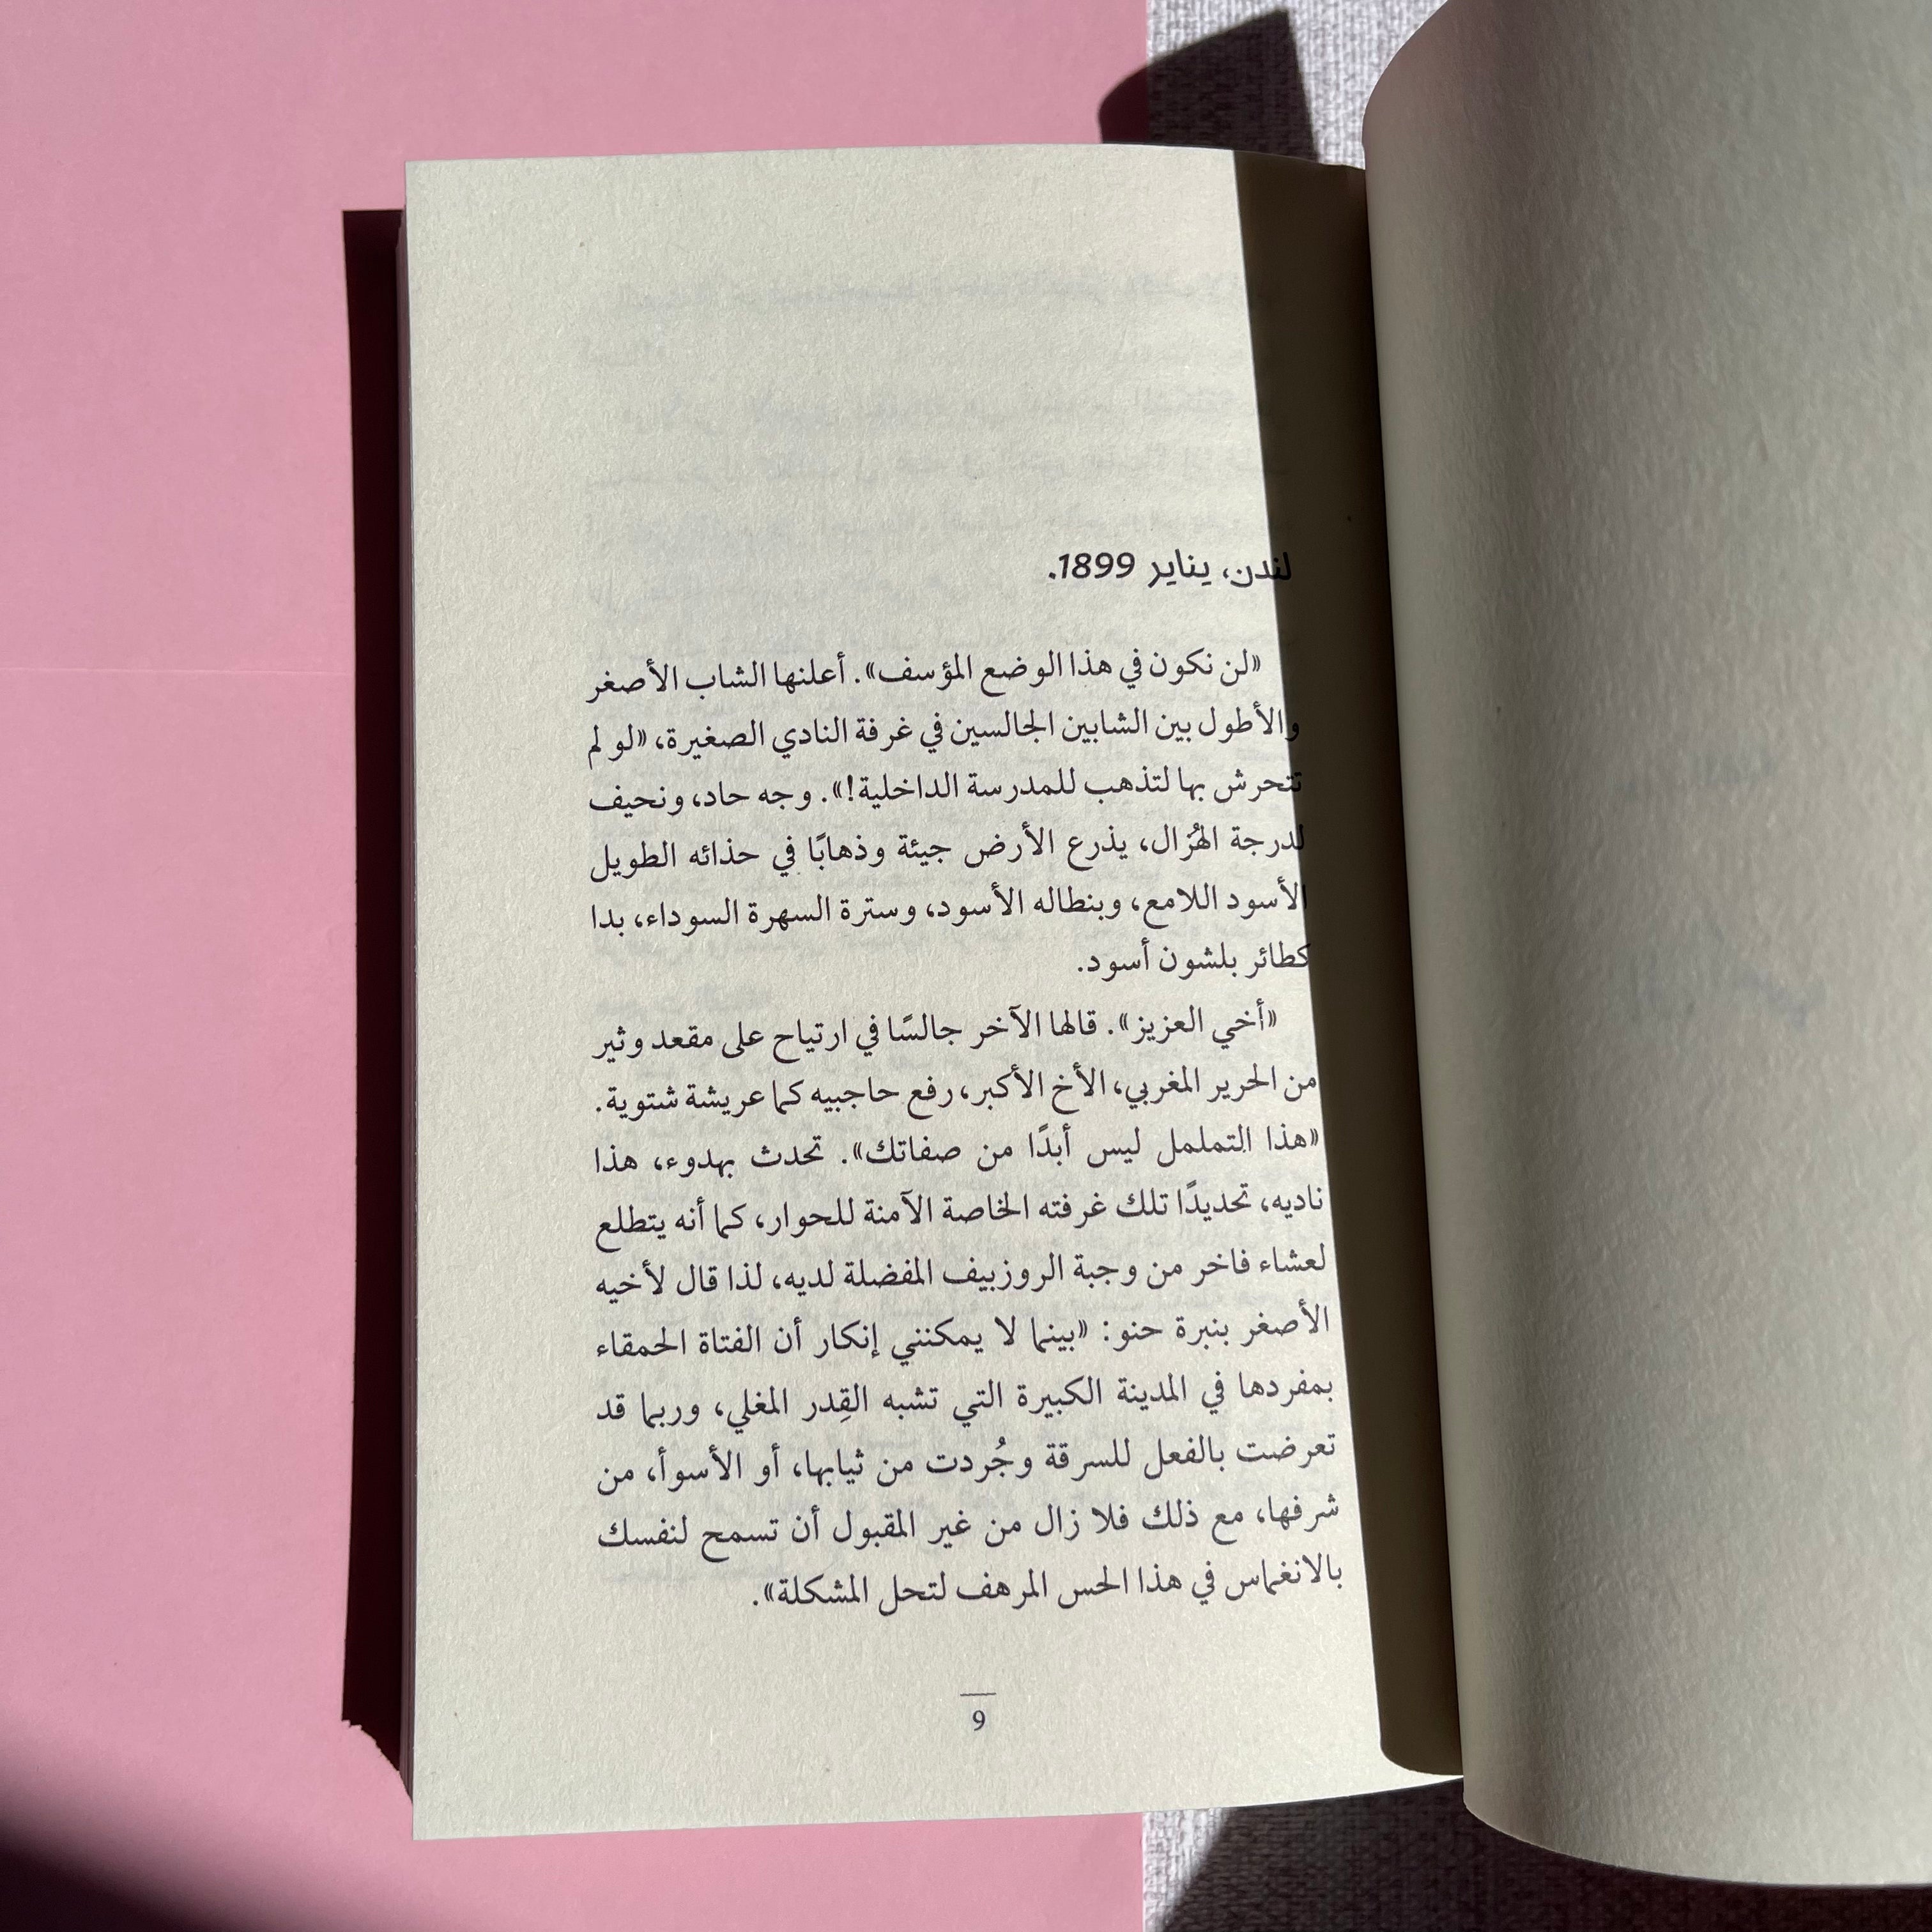 لندن، يناير 1899.
«لن نكون في هذا الوضع المؤسف». أعلنها الشاب الأصغر
والأطول بين الشابين الجالسين في غرفة النادي الصغيرة، «لو لم
تتحرش بها لتذهب للمدرسة الداخلية!». وجه حاد، ونحيف
لدرجة الهُزال، يذرع الأرض جيئة وذهابًا في حذائه الطويل
الأسود اللامع، وبنطاله الأسود، وسترة السهرة السوداء، بدا
كطائر بلشون أسود.
«أخي العزيز». قالها الآخر جالسًا في ارتياح على مقعد وثير
من الحرير المغربي، الأخ الأكبر، رفع حاجبيه كما عريشة شتوية.
«هذا التململ ليس أبدًا من صفاتك». تحدث بهدوء، هذا
ناديه، تحديدًا تلك غرفته الخاصة الآمنة للحوار، كما أنه يتطلع
لعشاء فاخر من وجبة الروزبيف المفضلة لديه، لذا قال لأخيه
الأصغر بنبرة حنو: «بينما لا يمكنني إنكار أن الفتاة الحمقاء
بمفردها في المدينة الكبيرة التي تشبه القِدر المغلي، وربما قد
تعرضت بالفعل للسرقة وجُردت من ثيابها، أو الأسوأ، من
شرفها، مع ذلك فلا زال من غير المقبول أن تسمح لنفسك
بالانغماس في هذا الحس المرهف لتحل المشكلة».
9